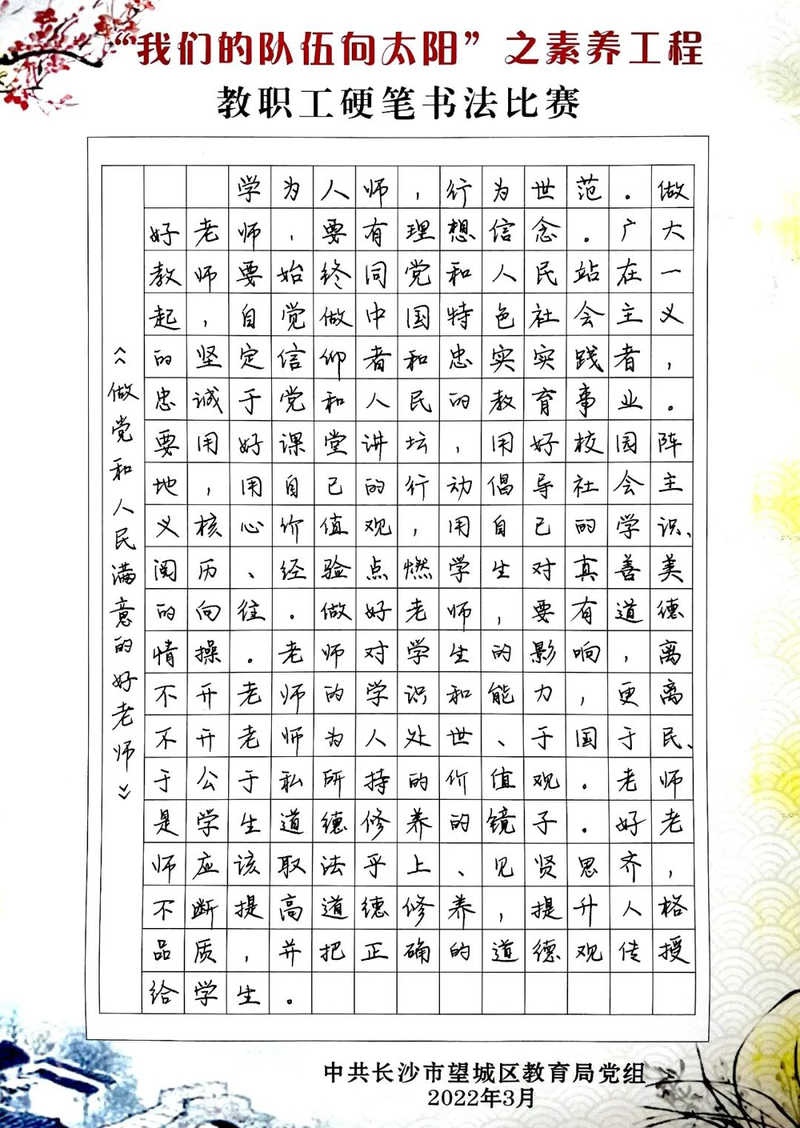 “我们的队伍向太阳”之素养工程
教职工硬笔书法比赛
《做党和人民满意的好老师》
学为人师，行为世范。做
好老师，要有理想信念。广大
教师要始终同党和人民站在一
起，自觉做中国特色社会主义
的坚定信仰者和忠实实践者，
忠诚于党和人民的教育事业。
要用好课堂讲坛，用好校园阵
地，用自己的行动倡导社会主
义核心价值观，用自己的学识、
阅历、经验点燃学生对真善美
的向往。做好老师，要有道德
情操。老师对学生的影响，离
不开老师的学识和能力，更离
不开老师为人处世、于国于民、
于公于私所持的价值观。老师
是学生道德修养的镜子。好老
师应该取法乎上、见贤思齐，
不断提高道德修养，提升人格
品质，并把正确的道德观传授
给学生。
中共长沙市望城区教育局党组
2022年3月